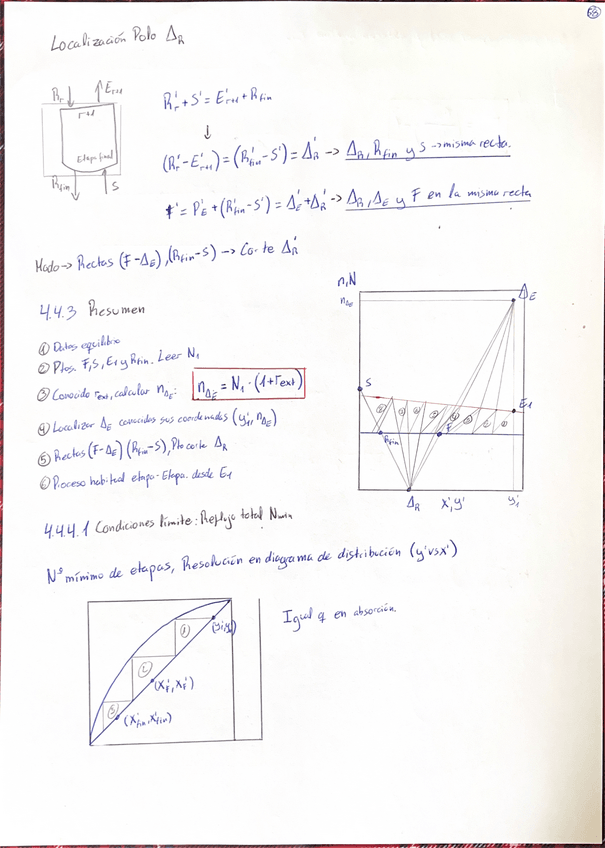 Localización Polo Δ_R
R_r' + S' = E'_{r+1} + R_fin
R_r
E_{r+1}
r+1
Etapa final
R_fin
S
↓
(R_r' - E'_{r+1}) = (R'_fin - S') = Δ'_R → Δ_R, R_fin y S → misma recta.
F' = P'_E + (R'_fin - S') = Δ'_E + Δ'_R → Δ_R, Δ_E y F en la misma recta
Modo → Rectas (F-Δ_E), (R_fin-S) → Corte Δ'_R
4.4.3 Resumen
① Datos equilibrio
② Ptos. F, S, E_1 y R_fin. Leer N_1
③ Conocido r_ext, calcular n_ΔE: n_ΔE = N_1 · (1+r_ext)
④ Localizar Δ_E conocidas sus coordenadas (y'_1, n_ΔE)
⑤ Rectas (F-Δ_E) (R_fin-S), Pto corte Δ_R
⑥ Proceso habitual etapa-Etapa. desde E_1
n, N
n_ΔE
Δ_E
S
E_1
R_fin
F
Δ_R
x', y'
y'_1
4.4.4.1 Condiciones límite: Reflujo total N_min
Nº mínimo de etapas, Resolución en diagrama de distribución (y' vs x')
Igual q en absorción.
①
②
(x'_F, x'_F)
③
(x'_fin, x'_fin)